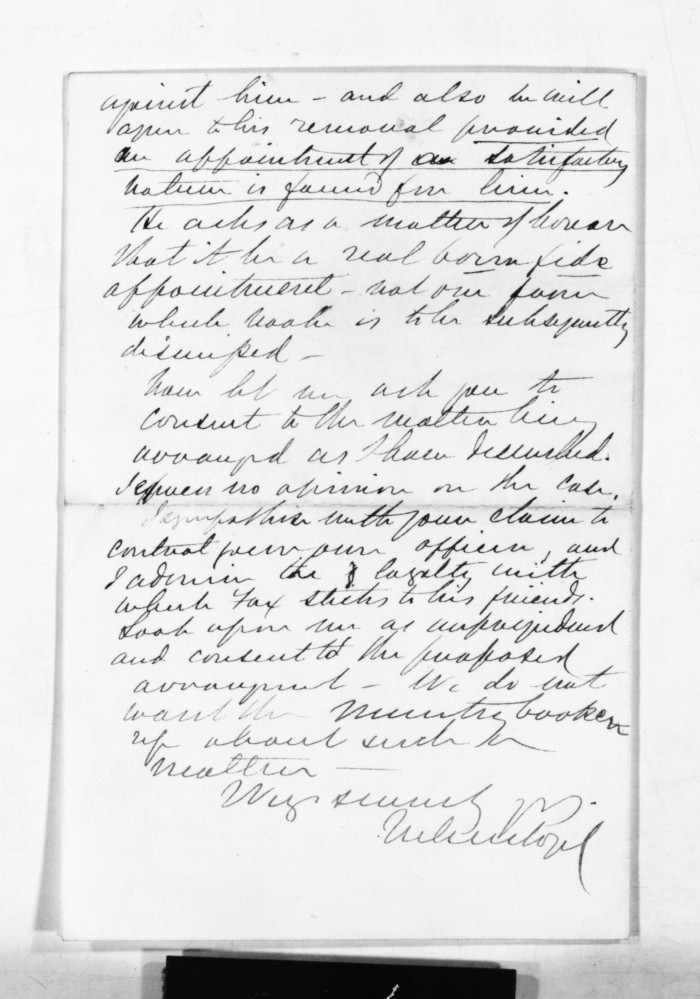 against him - and also he will
agree to his removal provided
an appointment of a satisfactory
nature is found for him.
He asks as a matter of honour
that it be a real bona fide
appointment - not one from
which he is to be subsequently
dismissed -
Now let me ask you to
consent to the matter being
arranged as I have described.
I express no opinion on the case.
I sympathise with your claim to
control your own officers, and
I admire the loyalty with
which Fox sticks to his friends.
Look upon me as unprejudiced
and consent to the proposed
arrangement - We do not
want the Ministry broken
up about such a
matter -
sincerely yrs.